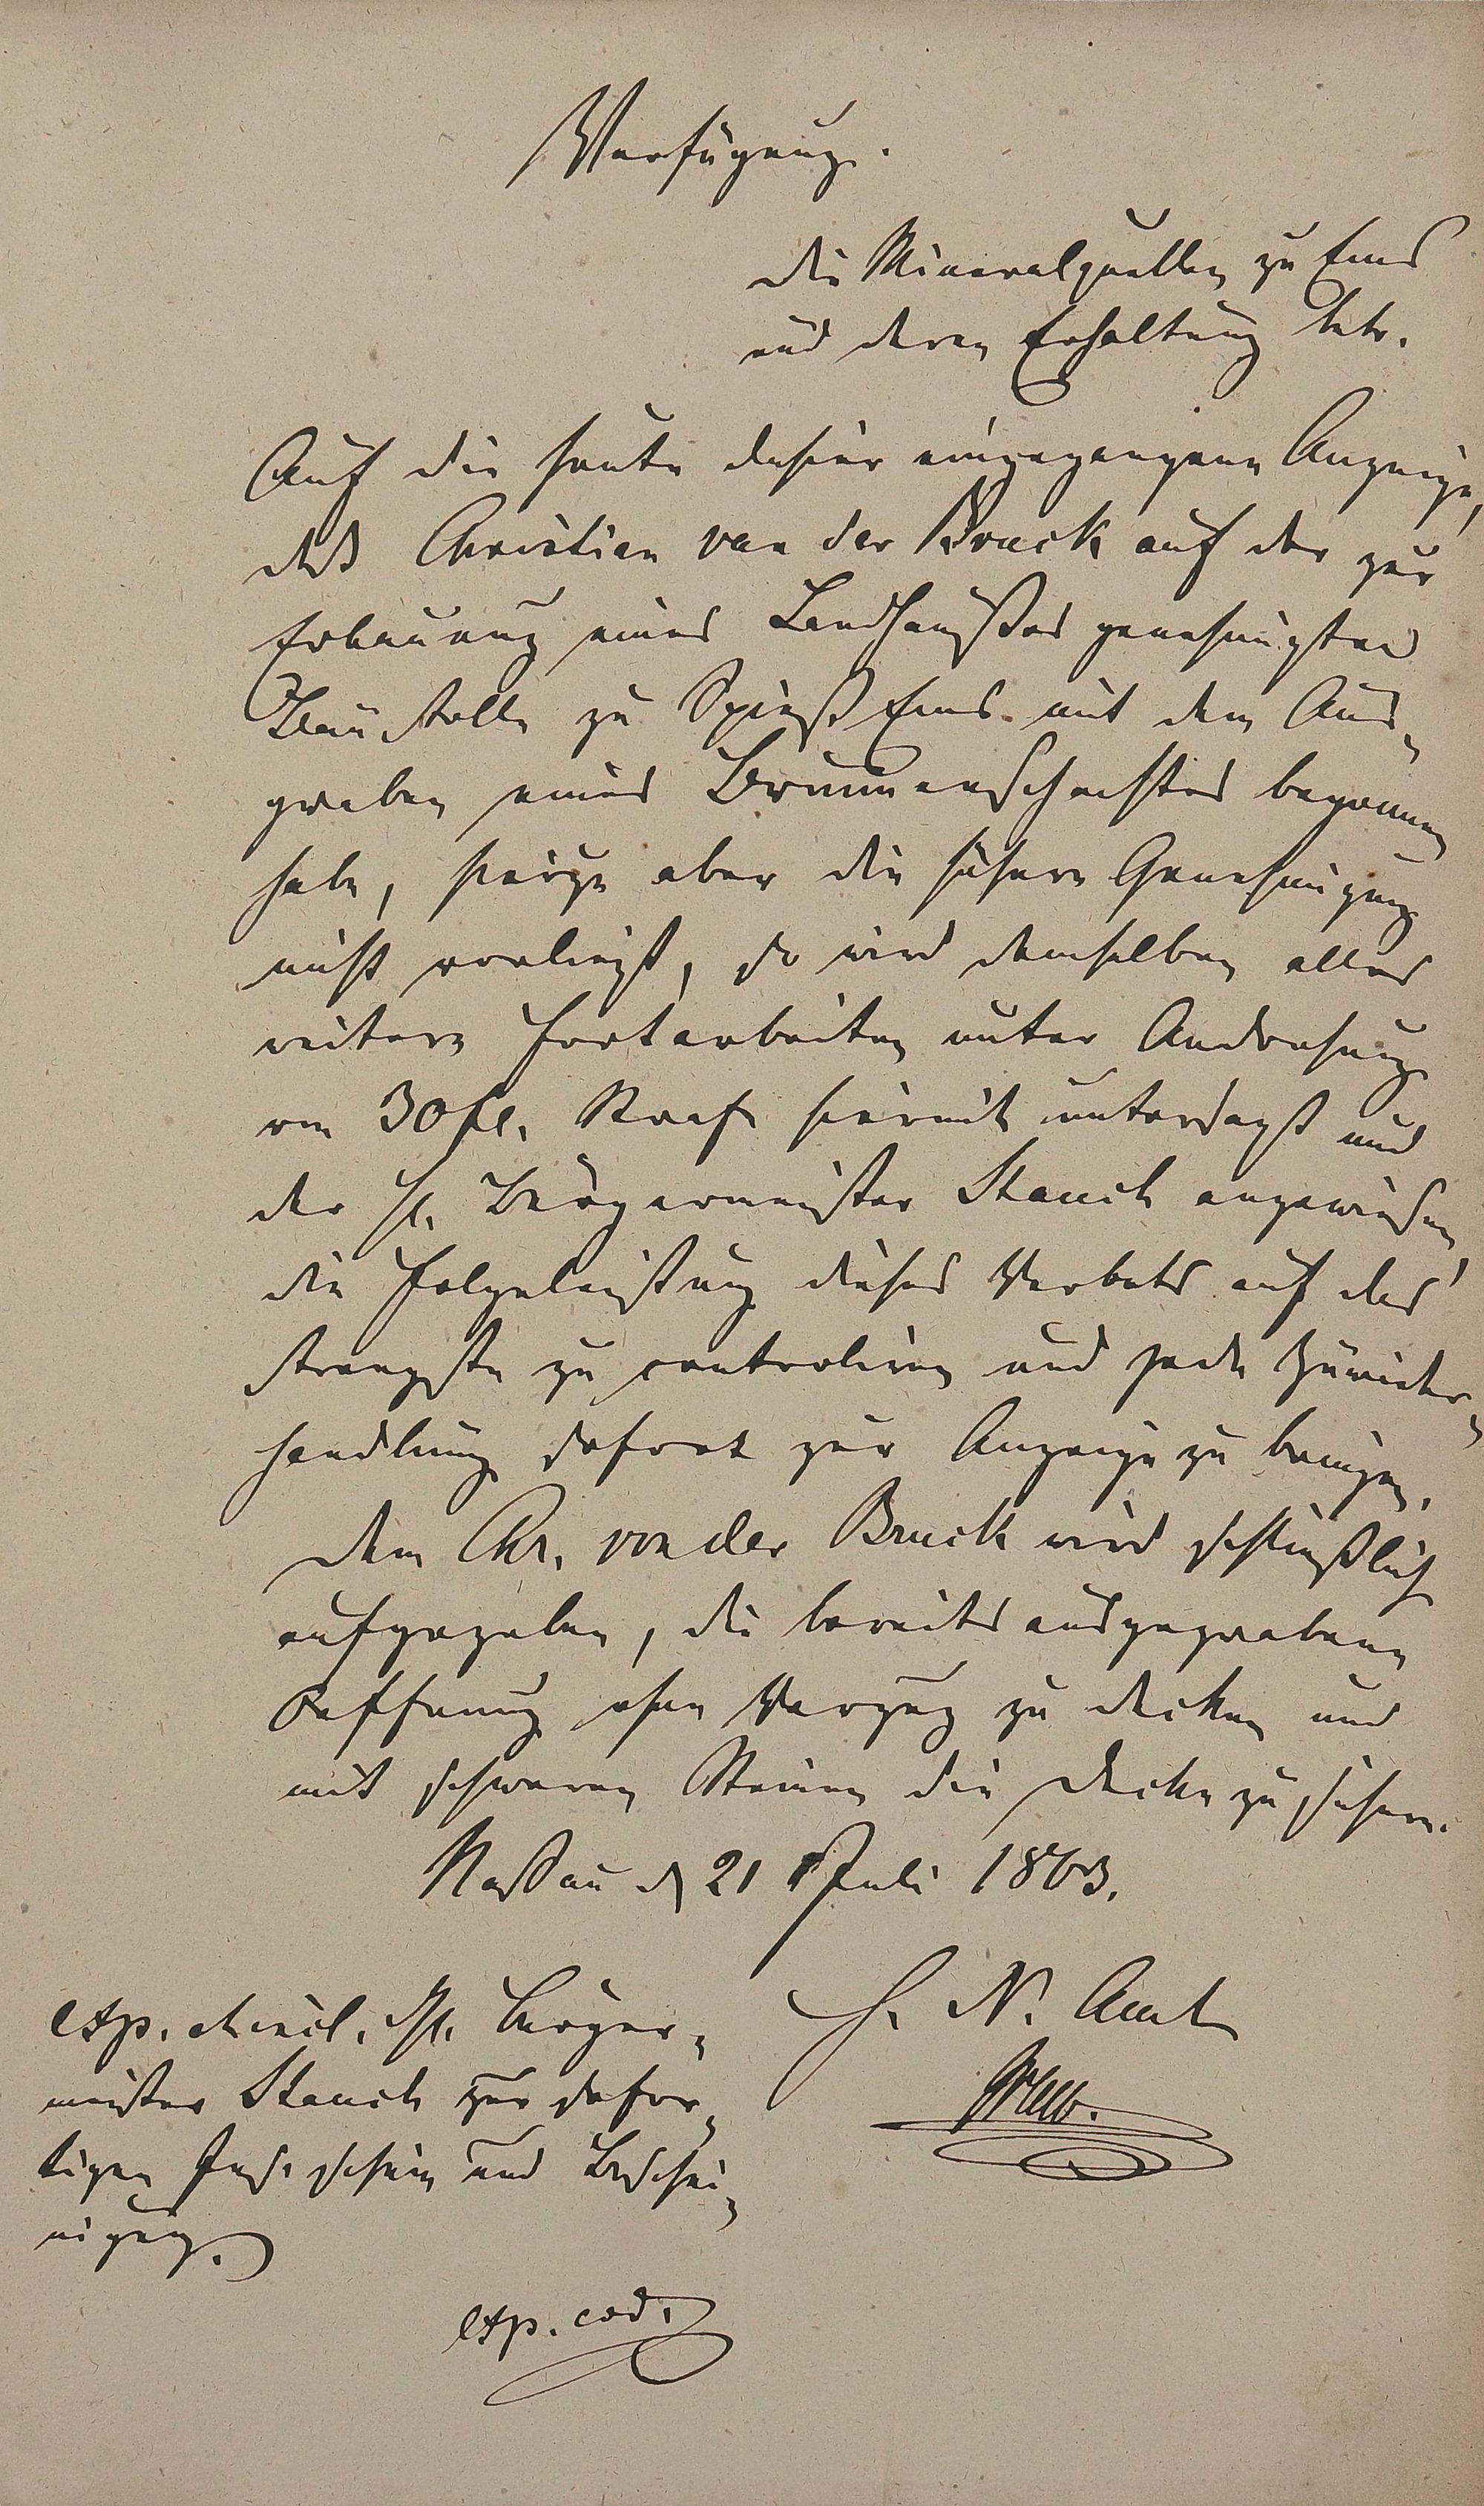 Verfügung.
die Mineralquellen zu Ems
und deren Erhaltung betr.
Auf die heute dahier eingegangene Anzeige,
daß Christian van der Bruck auf der zur
Erbauung eines Landhaußes genehmigten
Baustelle zu Spieß Ems mit dem Aus-
graben eines Brunnenschachtes begonnen
habe, hierzu aber die höhere Genehmigung
nicht vorliegt, so wird demselben alles
weitere Fortarbeiten unter Androhung
von 30 fl. Strafe hiermit untersagt und
der H. Bürgermeister Stauch angewiesen,
die Folgeleistung dieses Verbots auf das
strengste zu controliren und jede Zuwider-
handlung sofort zur Anzeige zu bringen.
Dem Chr. von der Bruck wird schließlich
aufgegeben, die bereits ausgegrabene
Oeffnung ohne Verzug zu decken und
mit schweren Steinen die Decke zu sichern.
Naßau d 21 Juli 1863.
H. N. Amt
exp. H. Bürger-
meister Stauch zur sofor-
tigen und Beschei-
nigung.
exp. eod.